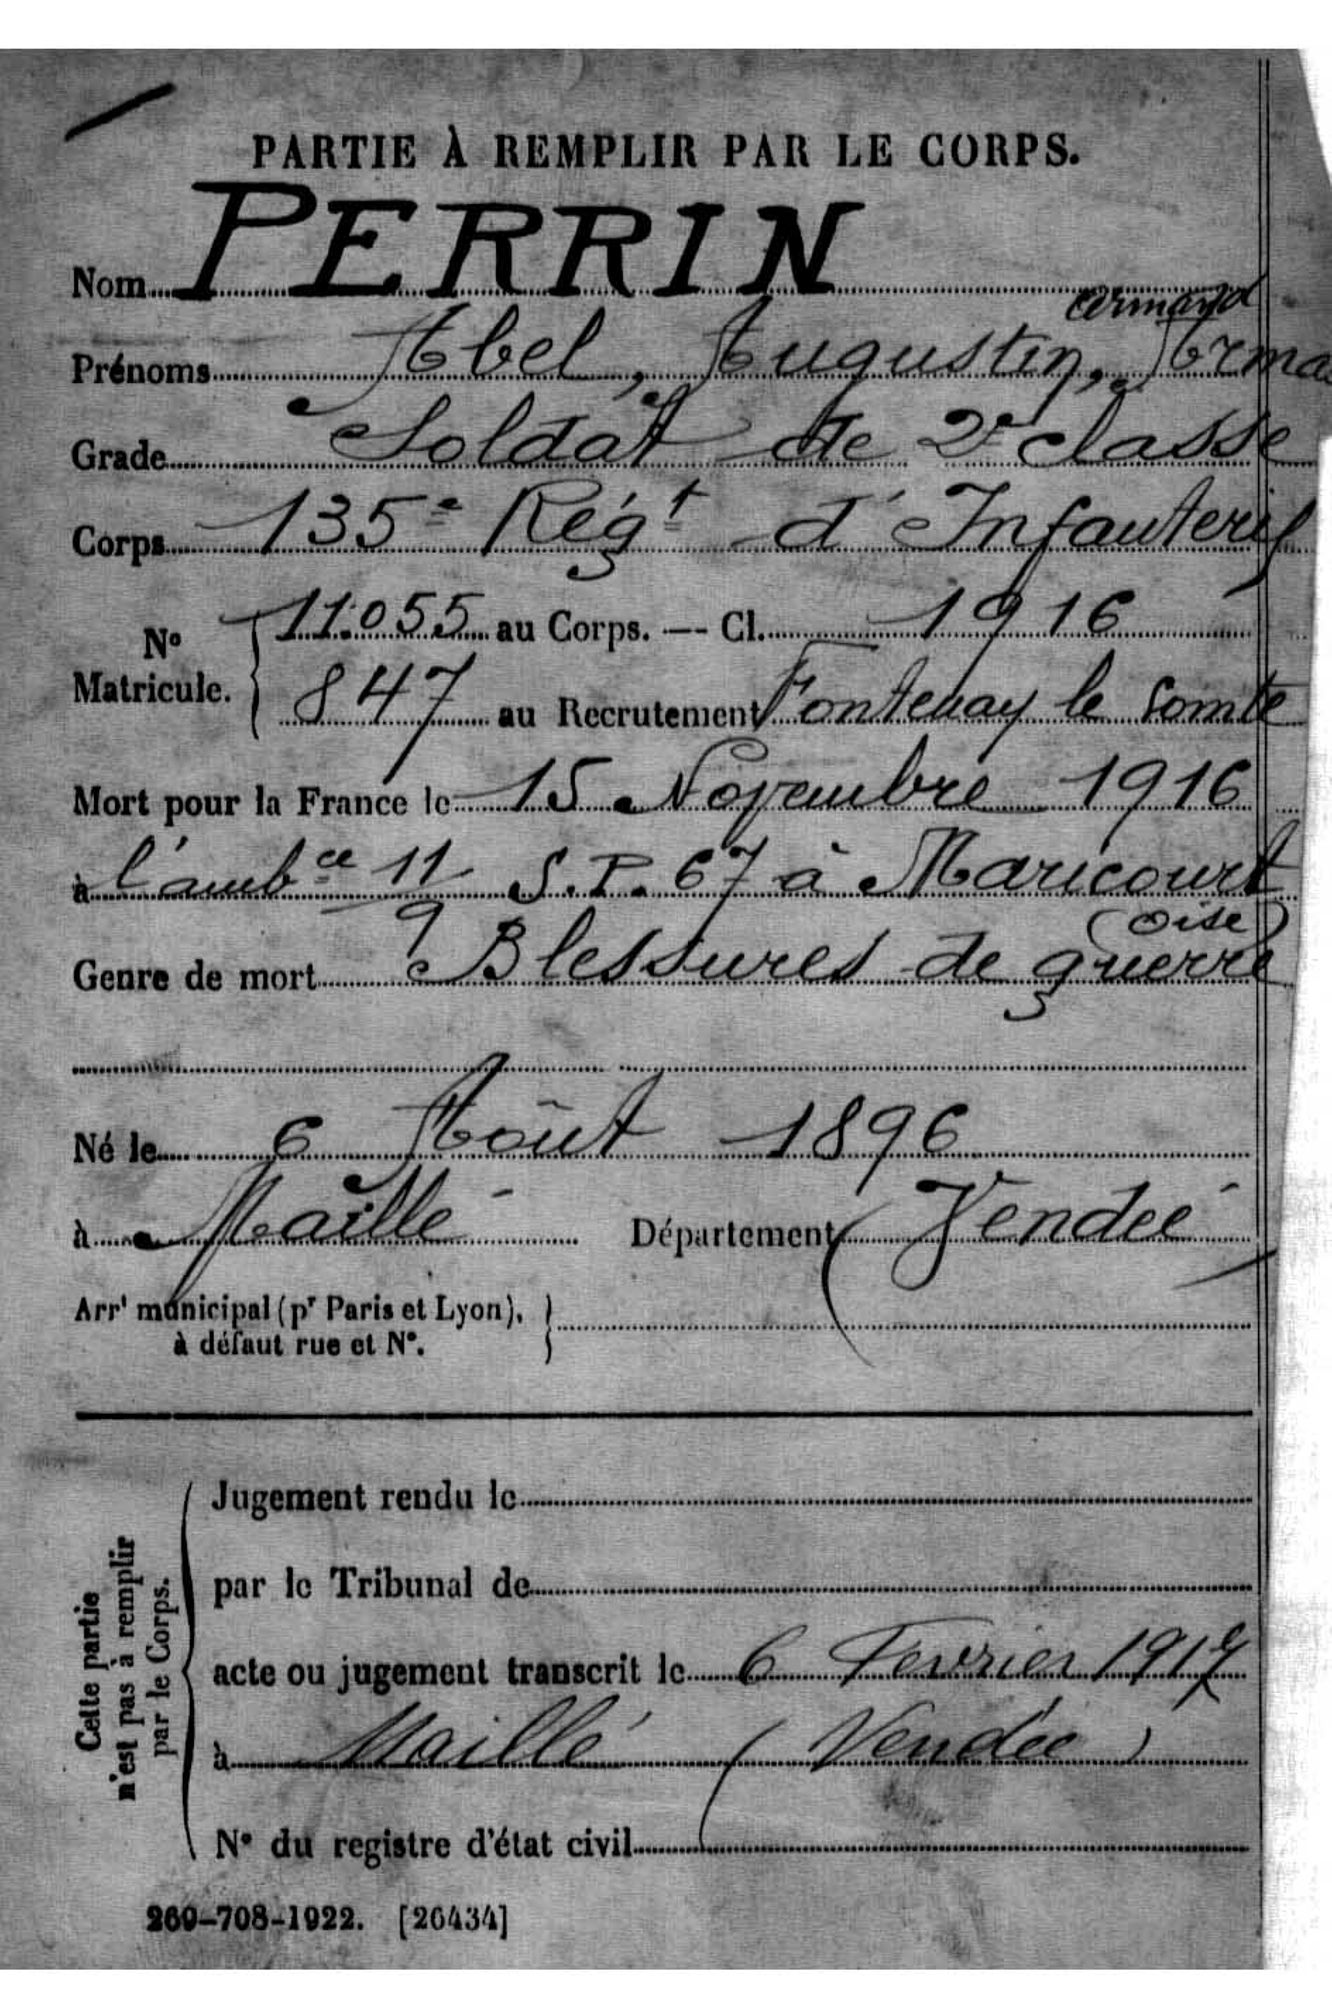 PARTIE À REMPLIR PAR LE CORPS.
Nom PERRIN
armand
Prénoms Abel, Augustin, Arma
Grade Soldat de 2e classe
Corps 135e Régt d'Infanterie
No Matricule. 11.055 au Corps. — Cl. 1916
847 au Recrutement Fontenay le Comte
Mort pour la France le 15 Novembre 1916
à l'ambce 11 S.P. 67 à Maricourt
9 (Oise)
Genre de mort Blessures de guerre
Né le 6 Août 1896
à Maillé Département (Vendée
Arrt municipal (pr Paris et Lyon),
à défaut rue et No.
Cette partie
n'est pas à remplir
par le Corps.
Jugement rendu le
par le Tribunal de
acte ou jugement transcrit le 6 Fevrier 1917
à Maillé (Vendée)
No du registre d'état civil
269-708-1922. [26434]